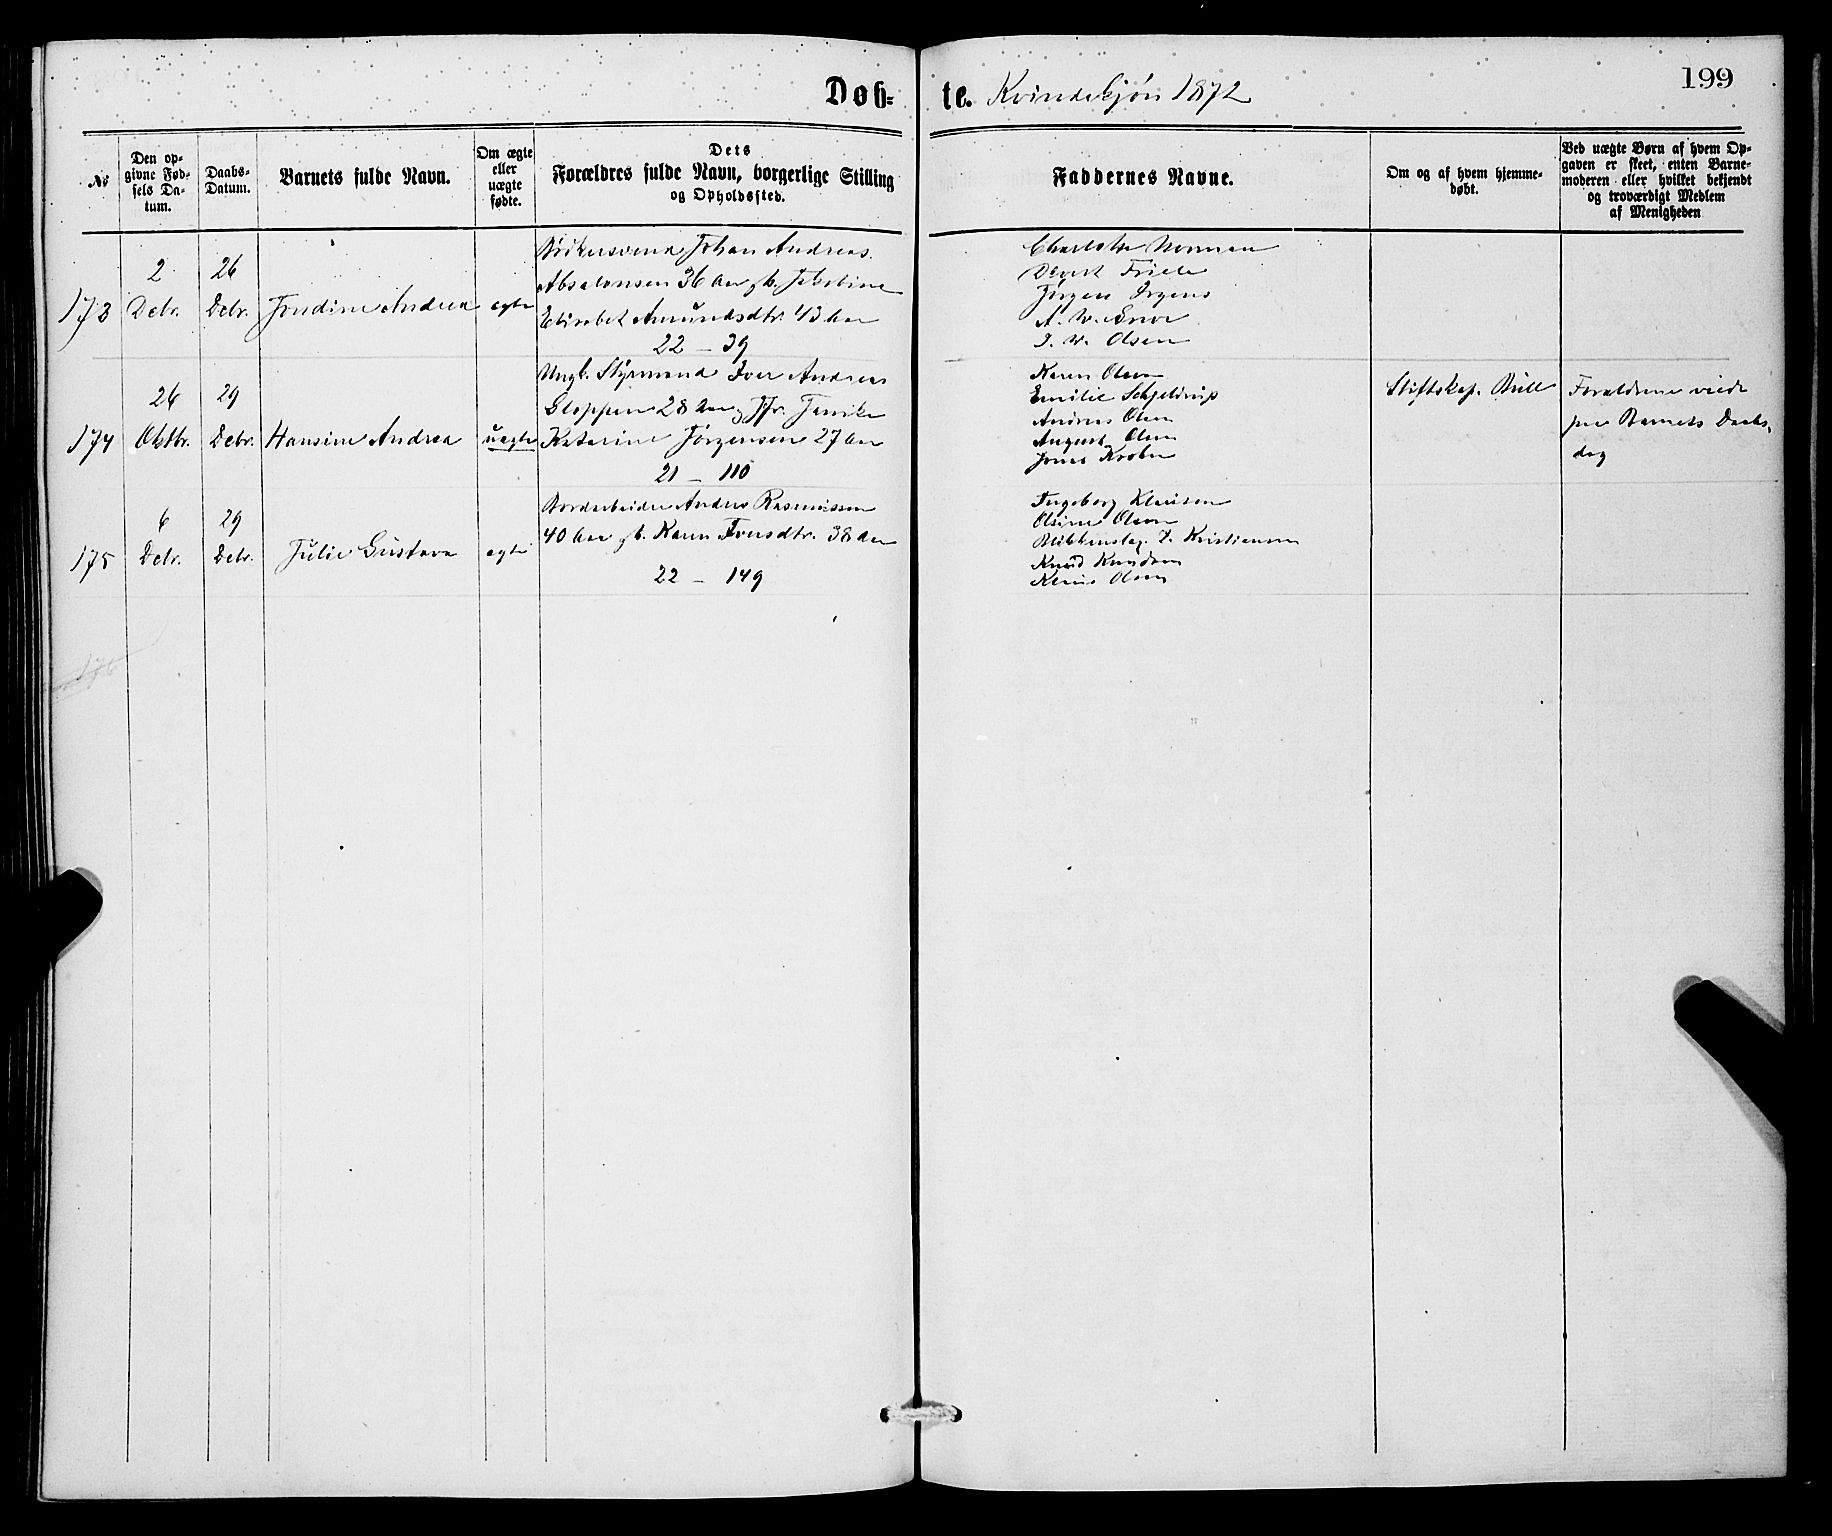 Døb-
te. Kvindekjøn 1872
199
No
Den op-
givne Fød-
sels Da-
tum.
Daabs-
Datum.
Barnets fulde Navn.
Om ægte
eller
uægte
fødte.
Dets
Forældres fulde Navn, borgerlige Stilling
og Opholdssted.
Faddernes Navne.
Om og af hvem hjemme-
døbt.
Ved uægte Børn af hvem Op-
gaven er skeet, enten Barne-
moderen eller hvilket bekjendt
og troværdigt Medlem
af Menigheden
173
2
Debr.
26
Debr.
Jondine Andrea
egte
Bødkersvend Johan Andreas
Absalonsen 36 Aar
Elisabet Amundsdtr. 43 Aar
22 – 39
Charlotte
Friele
Jørgen Irgens
A. W.
J. W. Olsen
174
26
Oktbr.
29
Debr.
Hansine Andrea
uegte
Ungk. Styrmand Iver Andreas
Gloppen 28 Aar og Jfr.
Katarine Jørgensen 27 Aar
21 – 110
Karen Olsen
Emilie Schjeldrup
Andreas Olsen
August Olsen
Stiftskap. Bull
Forældrene viede
paa Barnets Daabs-
dag
175
6
Debr.
29
Debr.
Julie Gustava
egte
Bordarbeider Anders Rasmussen
40 Aar Karen Iversdtr. 38 Aar
22 – 149
Ingeborg Klausen
Olsine Olsen
Blikkenslag. Kristiansen
Knud Knudsen
Olsen
176